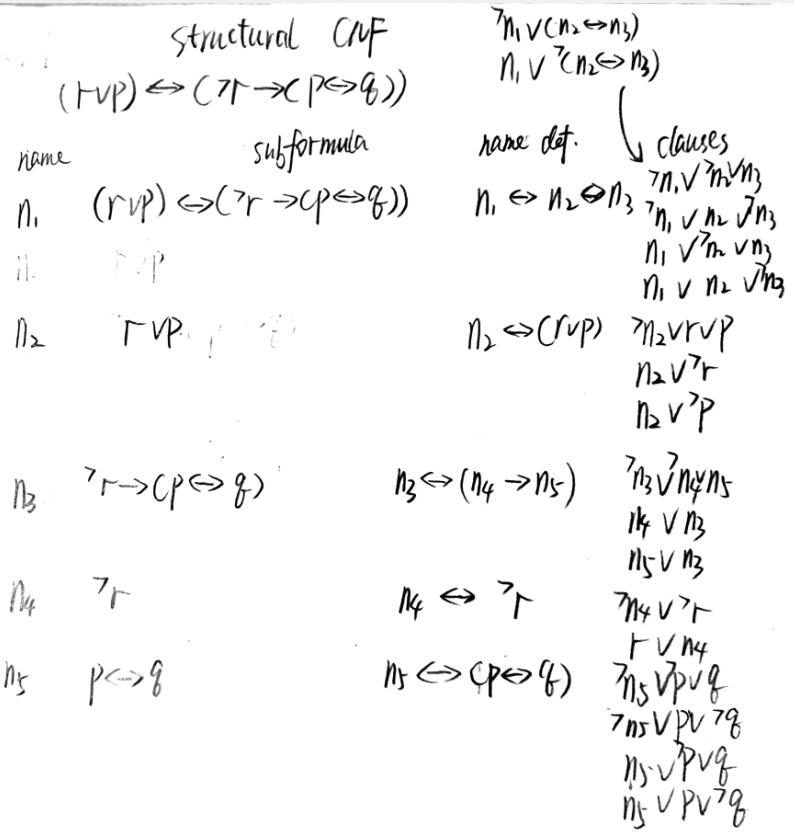 structural CNF
(r∨p) ↔ (¬r → (p↔q))
¬n₁ ∨ (n₂ ↔ n₃)
n₁ ∨ ¬(n₂ ↔ n₃)
name subformula name def. clauses
n₁ (r∨p) ↔ (¬r → (p↔q)) n₁ ↔ n₂ ↔ n₃ ¬n₁ ∨ ¬n₂ ∨ n₃
¬n₁ ∨ n₂ ∨ ¬n₃
n₁ ∨ ¬n₂ ∨ n₃
n₁ ∨ n₂ ∨ ¬n₃
n₂ r∨p n₂ ↔ (r∨p) ¬n₂ ∨ r ∨ p
n₂ ∨ ¬r
n₂ ∨ ¬p
n₃ ¬r → (p ↔ q) n₃ ↔ (n₄ → n₅) ¬n₃ ∨ ¬n₄ ∨ n₅
n₄ ∨ n₃
n₅ ∨ n₃
n₄ ¬r n₄ ↔ ¬r ¬n₄ ∨ ¬r
r ∨ n₄
n₅ p ↔ q n₅ ↔ (p ↔ q) ¬n₅ ∨ ¬p ∨ q
¬n₅ ∨ p ∨ ¬q
n₅ ∨ ¬p ∨ q
n₅ ∨ p ∨ ¬q